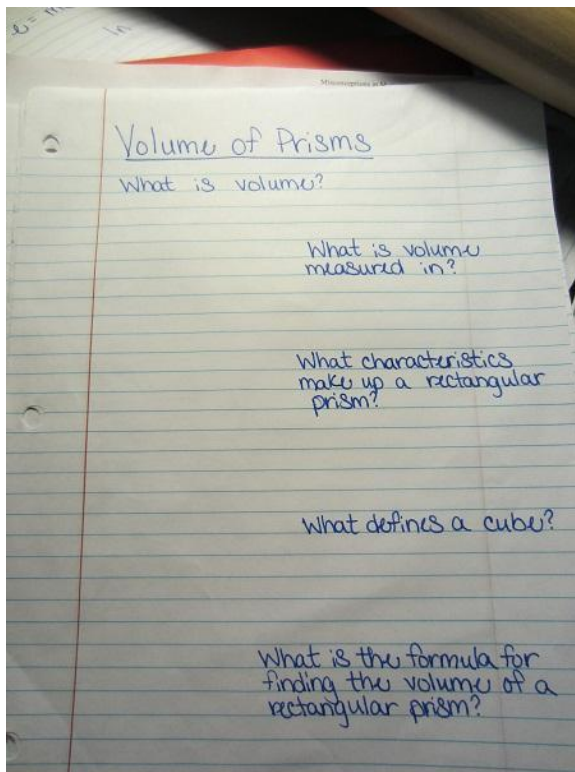 Misconceptions in M
Volume of Prisms
What is volume?
What is volume
measured in?
What characteristics
make up a rectangular
prism?
What defines a cube?
What is the formula for
finding the volume of a
rectangular prism?